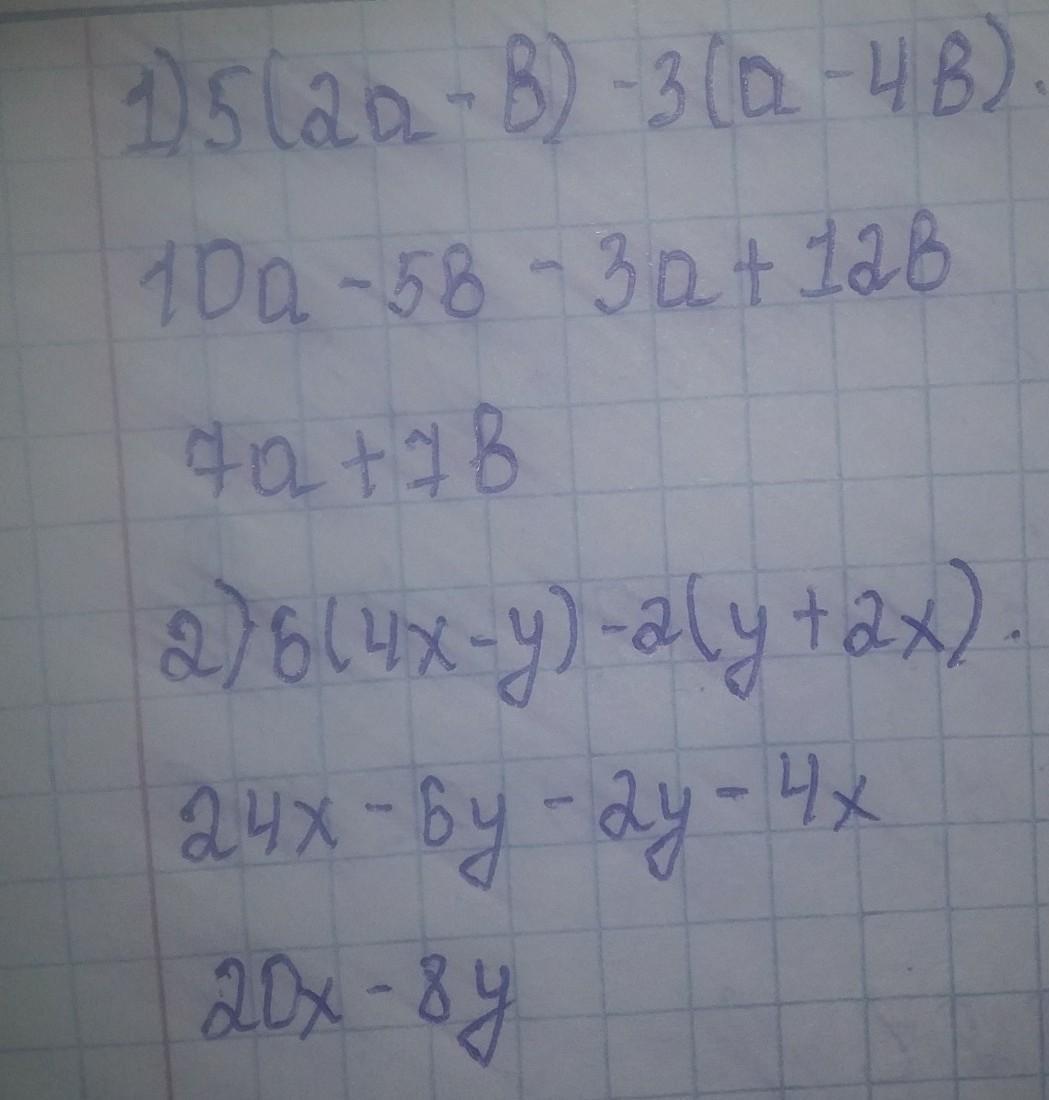 1) 5(2a - в) - 3(a - 4в).
10a - 5в - 3a + 12в
7a + 7в
2) 6(4x - y) - 2(y + 2x).
24x - 6y - 2y - 4x
20x - 8y